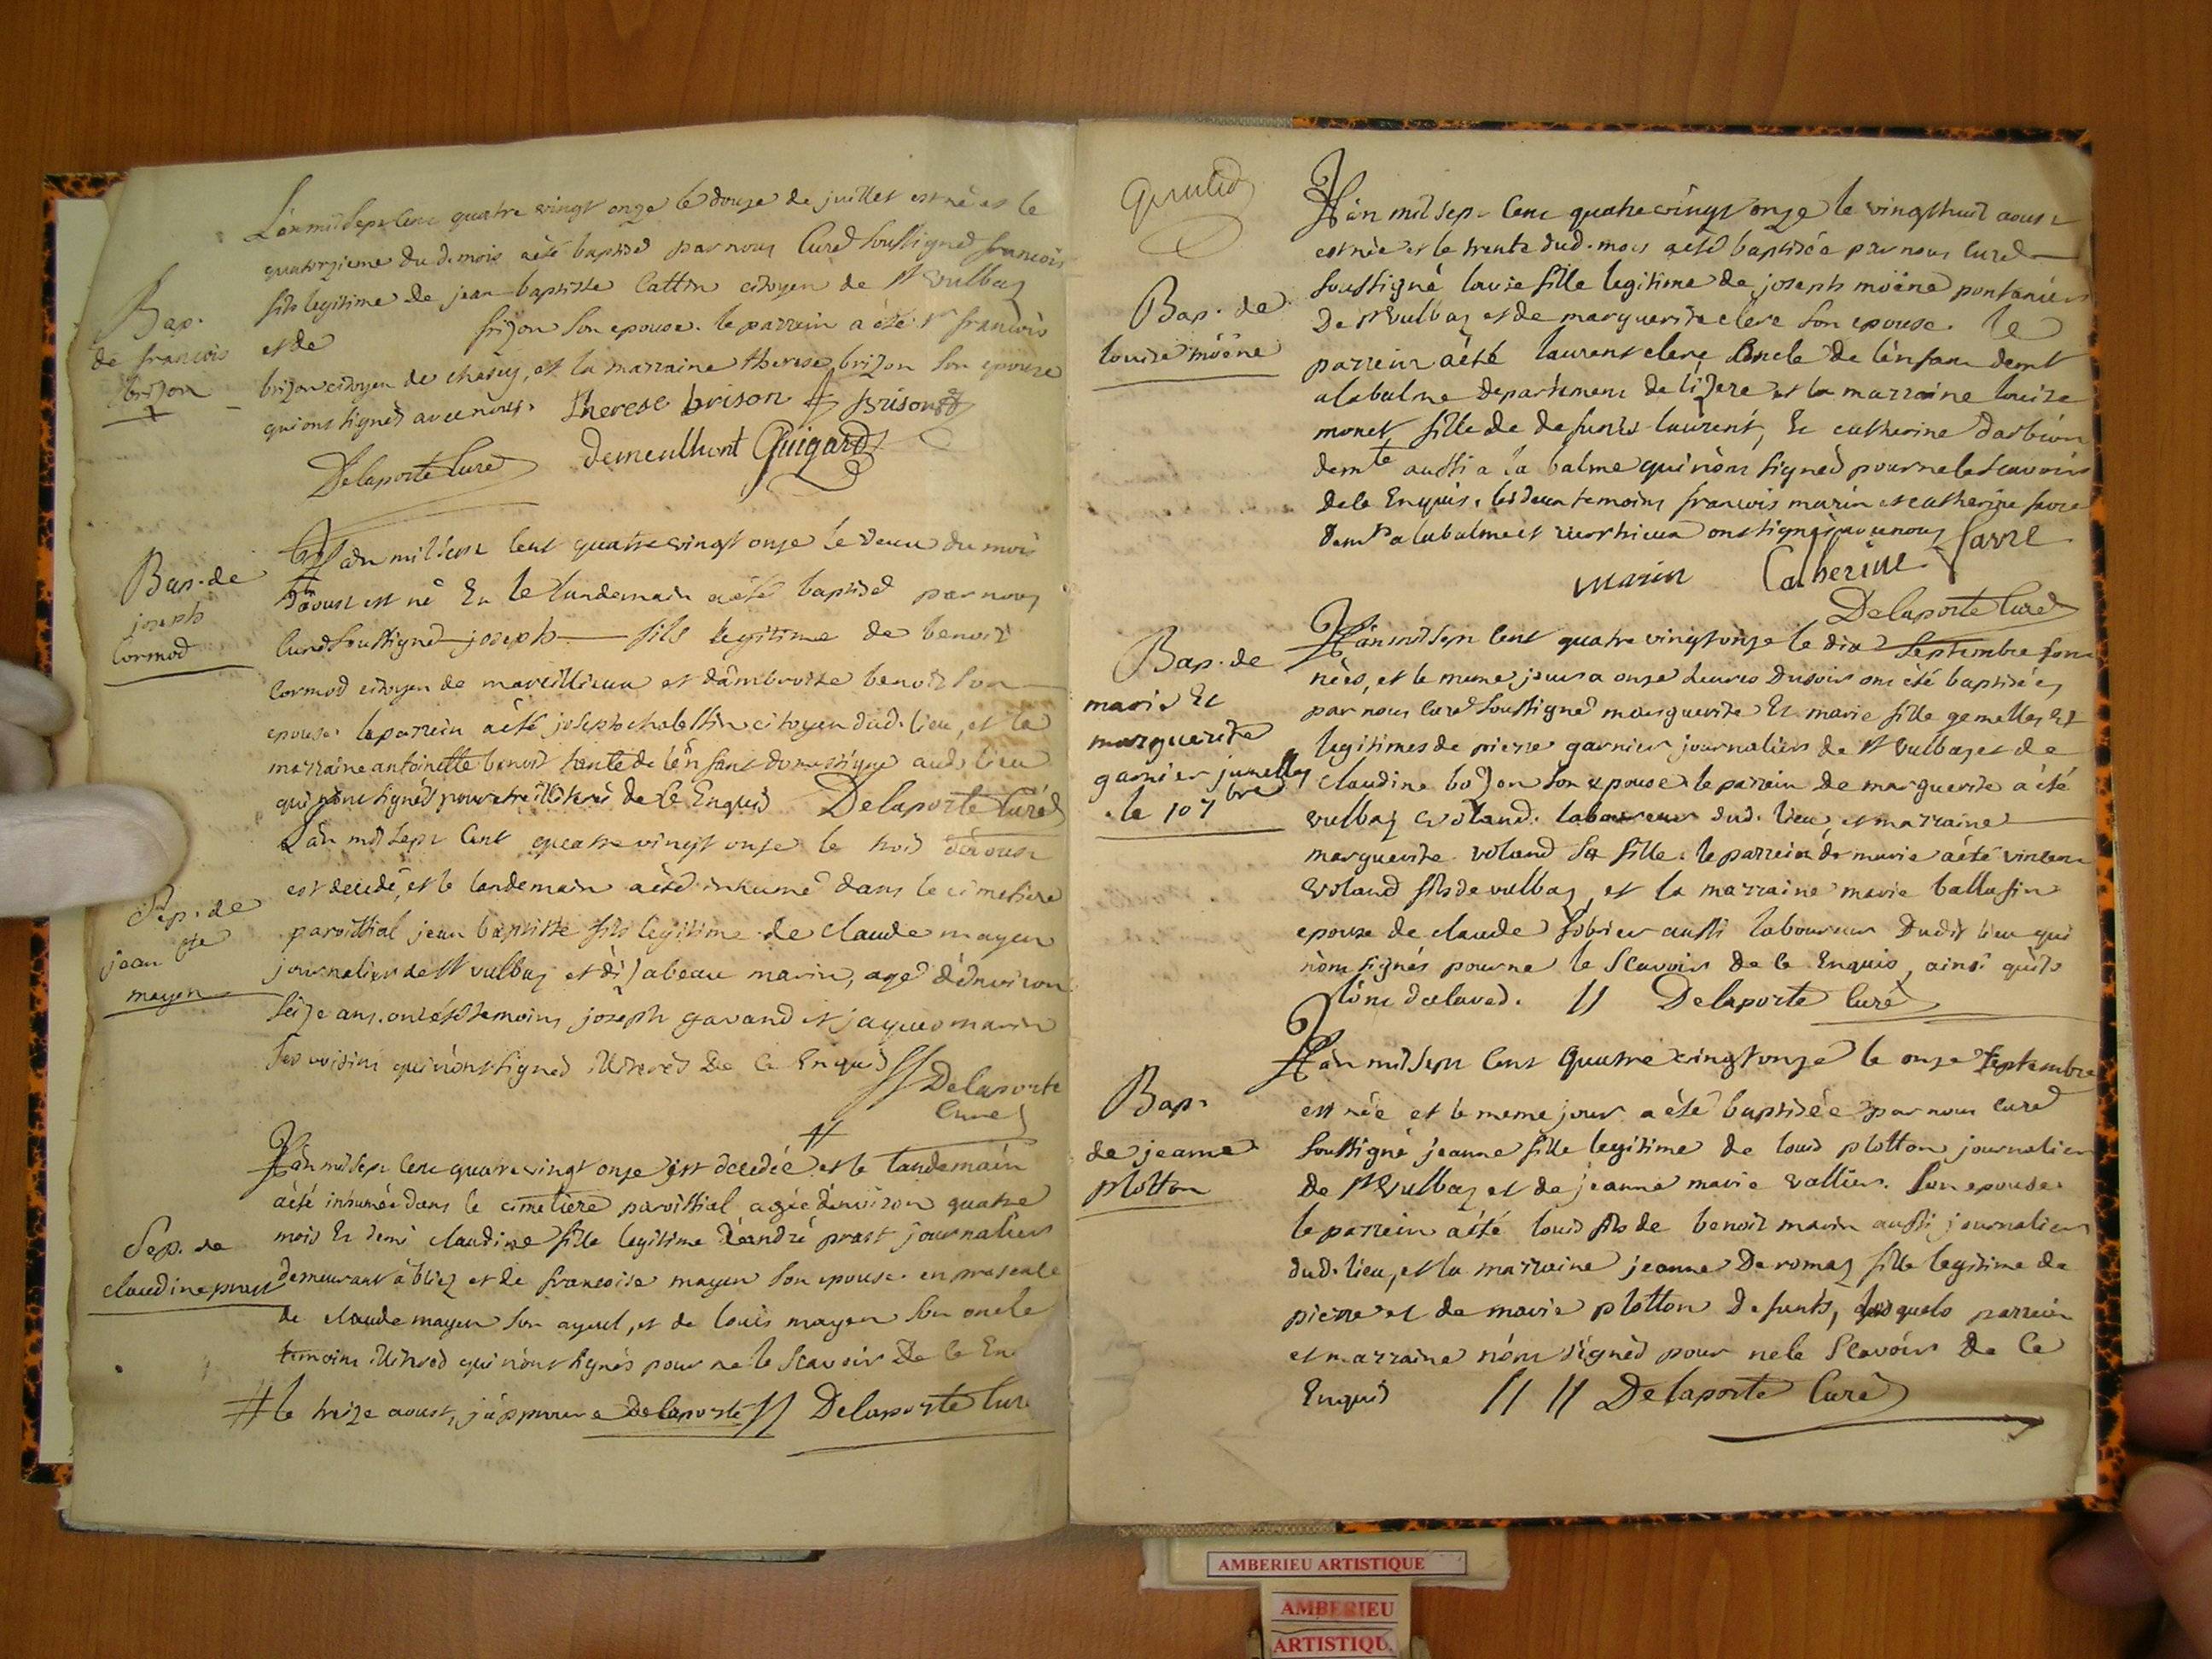 L'an mil sept cent quatre vingt onze le douze de juillet est né et le
quatorzieme du d. mois a été baptisé par nous Curé soussigné francois
fils legitime de jean-baptiste Cattin citoyen de st vulbaz
et de frizon son epouse. le parrein a été sr francois
brizon citoyen de chazey, et la marraine therese brizon son epouse
qui ont signés avec nous. Therese brison brison
Delaporte Curé Guigard
Bap.
de francois
brizon
L'an mil sept cent quatre vingt onze le deux du mois
d'aoust est né Et le landemain a été baptisé par nous
Curé soussigné joseph fils legitime de benoit
Cormod citoyen de marcillieux et d'ambroise benoit son
epouse. le parrein a été joseph citoyen dud. lieu, et la
marraine antoinette benoit tante de l'enfant domestique aud. lieu
qui n'ont signés pour etre illiterés de Ce Enquis Delaporte Curé
Bap. de
joseph
Cormod
L'an mil sept Cent quatre vingt onze le trois d'aoust
est decedé, et le landemain a été inhumé dans le cimetiere
paroissial jean baptiste fils legitime de claude mayen
journalier de st vulbaz et d'izabeau marin, agé d'environ
seize ans. ont été temoins joseph gavand et jaques marin
ses voisins qui n'ont signés illiterés De Ce Enquis
Delaporte
Curé
Sep. de
jean bte
mayen
L'an mil sept Cent quatre vingt onze # est decedée et le landemain
a été inhumée dans le cimetiere paroissial agée d'environ quatre
mois Et demi claudine fille legitime d'andré prast journalier
demeurant à bliez et de francoise mayen son epouse. en presence
de claude mayen son ayeul, et de louis mayen son oncle
temoins illiterés qui n'ont signés pour ne le Scavoir De Ce En
# le treize aoust, j'approuve Delaporte // Delaporte Curé
Sep. de
claudine prast
L'an mil sept Cent quatre vingt onze le vingt huit aoust
est née et le trente dud. mois a été baptisée par nous Curé
soussigné louise fille legitime de joseph möene
De st vulbaz et de marguerite clerc son epouse. le
parrein a été laurent clerc oncle de l'enfant demt
a la balme departement de l'izere et la marraine louise
monet, fille de defunts laurent, Et catherine
demte aussi a la balme qui n'ont signés pour ne le Scavoir
de Ce Enquis. les deux temoins francois marin et catherine favre
demts a la balme et ont signés avec nous
marin Catherine favre
Delaporte Curé
Bap. de
louise möene
L'an mil sept Cent quatre vingt onze le dix Septembre sont
nées, et le meme jour a onze heures du soir ont été baptisées
par nous Curé soussigné marguerite Et marie fille gemelles Et
legitimes de pierre garnier journalier de st vulbaz et de
claudine bozon son epouse. le parrein de marguerite a été
vulbaz voland. laboureur dud. lieu, et marraine
marguerite voland sa fille. le parrein de marie a été vincent
voland fils de vulbaz, et la marraine marie ballufin
epouse de claude sobrier aussi laboureur Dudit lieu qui
n'ont signés pour ne le Scavoir de Ce Enquis, ainsi qu'ils
l'ont declaré. // Delaporte Curé
Bap. de
marie Et
marguerite
garnier jumelles
le 10 7bre
L'an mil sept Cent Quatre vingt onze le onze Septembre
est née et le meme jour a été baptisée par nous Curé
soussigné jeanne fille legitime de louis plotton journalier
de st vulbaz et de jeanne marie vallier. son epouse.
le parrein a été louis fils de benoit marin aussi journalier
dud. lieu, et la marraine jeanne De romaz fille legitime de
pierre et de marie plotton Defunts, lesquels parrein
et marraine n'ont signés pour ne le Scavoir de Ce
Enquis // // Delaporte Curé
Bap.
de jeanne
plotton
AMBERIEU ARTISTIQUE
AMBERIEU
ARTISTIQU